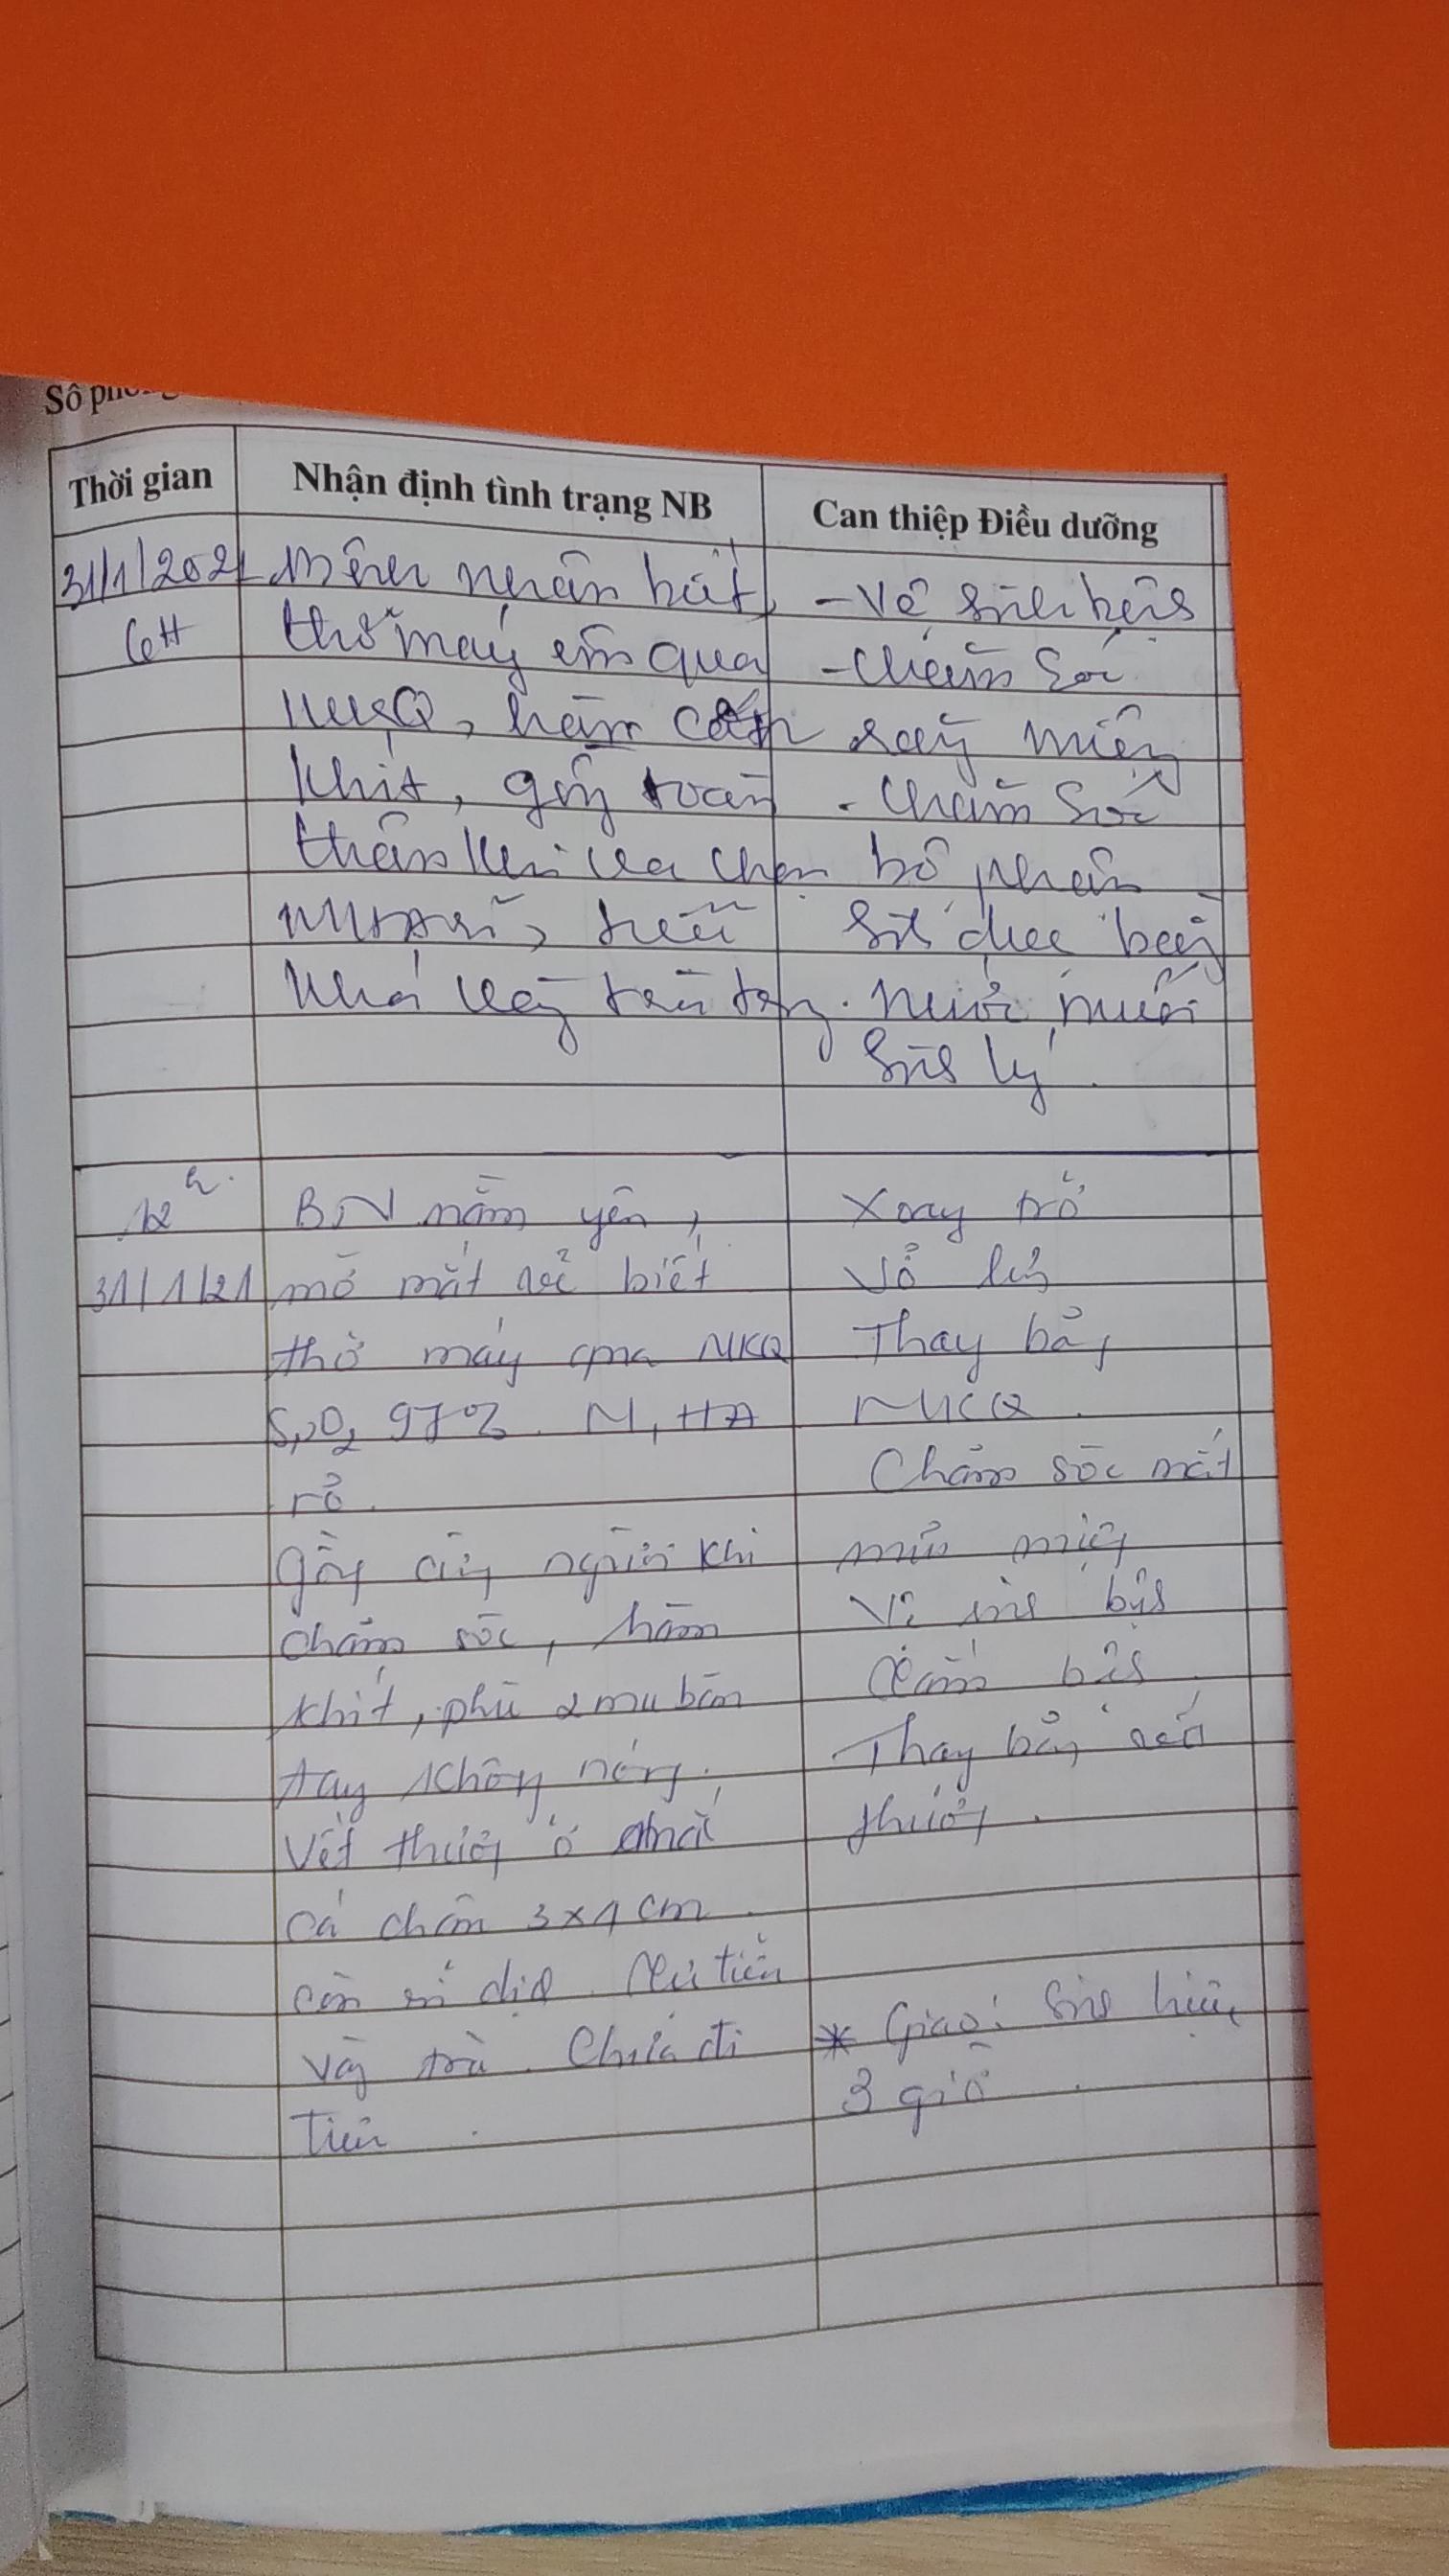 Số
Thời gian
Nhận định tình trạng NB
Can thiệp Điều dưỡng
31/1/2021
6H
Bệnh nhân
thở máy êm qua
MKQ, hàm cắn
khít, gồng toàn
thân khi va chạm
tiểu
khá vàng trong
- Vệ sinh
- Chăm sóc
răng miệng
- Chăm sóc
bộ phận
sinh dục bằng
nước muối
sinh lý
12h
31/1/21
BN nằm yên,
mở mắt biết
thở máy qua MKQ
SpO2 97% M, HA
rõ.
gồng cứng người khi
chăm sóc, hàm
khít, phù 2 mu bàn
tay không nóng.
Vết thương ở
cá chân 3x4cm
còn rỉ dịch tiểu
vàng trà. Chưa đi
Tiêu.
Xoay trở
Vỗ lưng
Thay băng
MKQ.
Chăm sóc mắt
mũi miệng
Vệ sinh
Thay băng vết
thương.
* Giao: Sinh hiệu
3 giờ